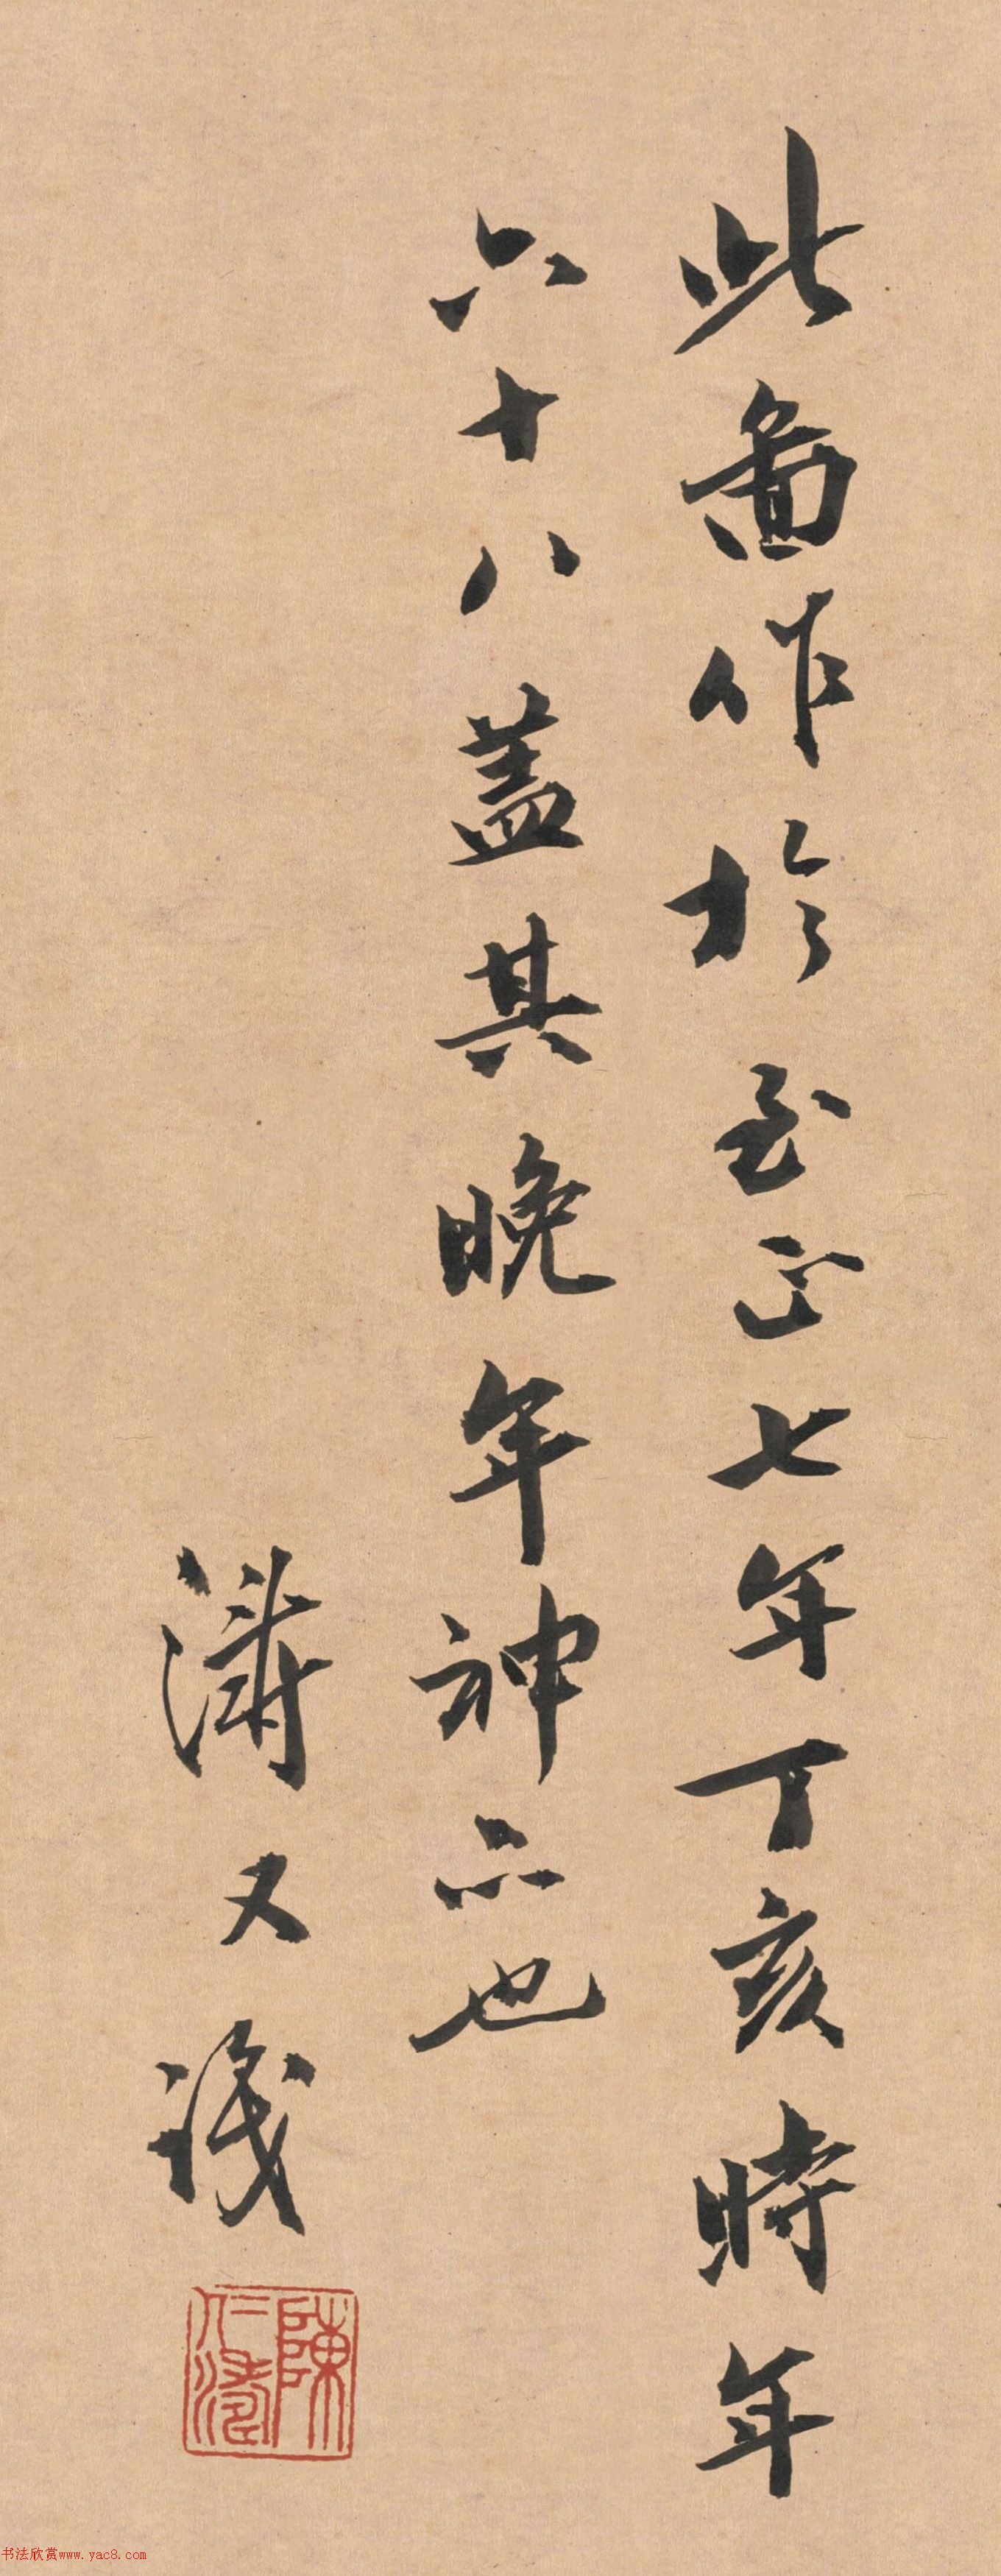 此圖作於至正七年丁亥時年
六十八蓋其晚年神品也
濤又識
陳仁濤
书法欣赏www.yac8.com